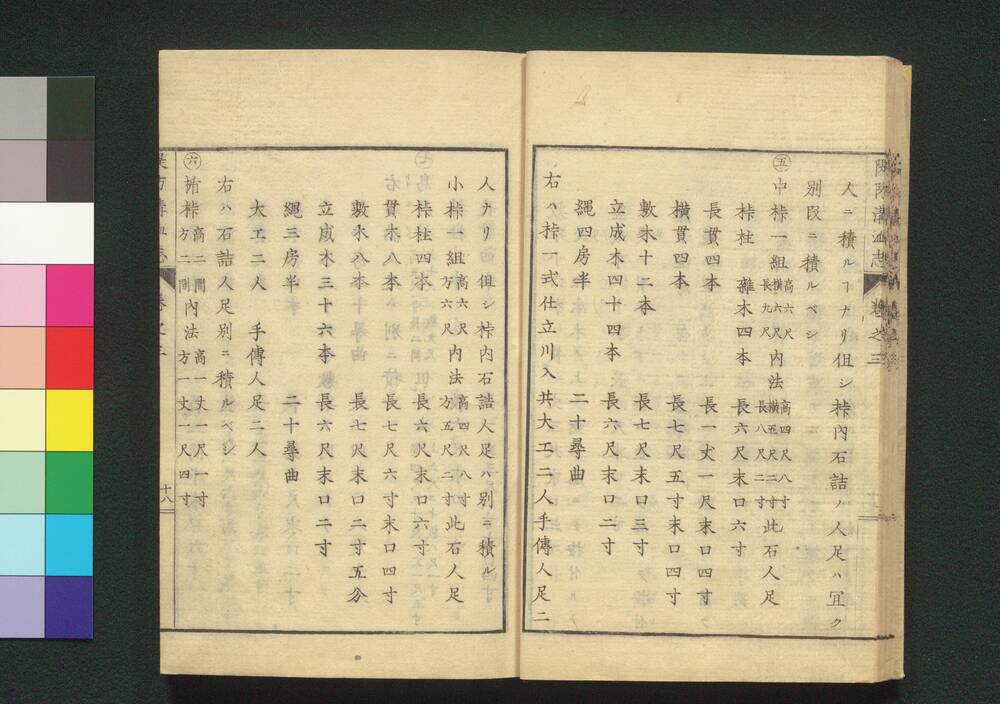 人ニ積ルヿナリ但シ枠内石詰ノ人足ハ冝ク
別段ニ積ルベシ
㊄中枠一組 高六尺 横六尺 長九尺 内法 高四尺八寸 横五尺二寸 長八尺二寸 此石人足
枠柱 雜木四本 長六尺末口六寸
長貫四本 長一丈一尺末口四寸
横貫四本 長七尺五寸末口四寸
敷木十二本 長七尺末口三寸
立成木四十四本 長六尺末口二寸
繩四房半 二十尋曲
右ハ枠一式仕立川入共大工二人手傳人足二
人ナリ但シ枠内石詰人足ハ別ニ積ル
小枠一組 高六尺 方六尺 内法 高四尺八寸 方五尺二寸 此石人足
枠柱四本 長六尺末口六寸
貫木八本 長七尺六寸末口四寸
敷木八本 長七尺末口二寸五分
立成木三十六本 長六尺末口二寸
繩三房半 二十尋曲
大工二人 手傳人足二人
右ハ石詰人足別ニ積ルベシ
㊅枠 高二間 方二間 内法 高一丈一尺一寸 方一丈一尺四寸
卷之三
十八